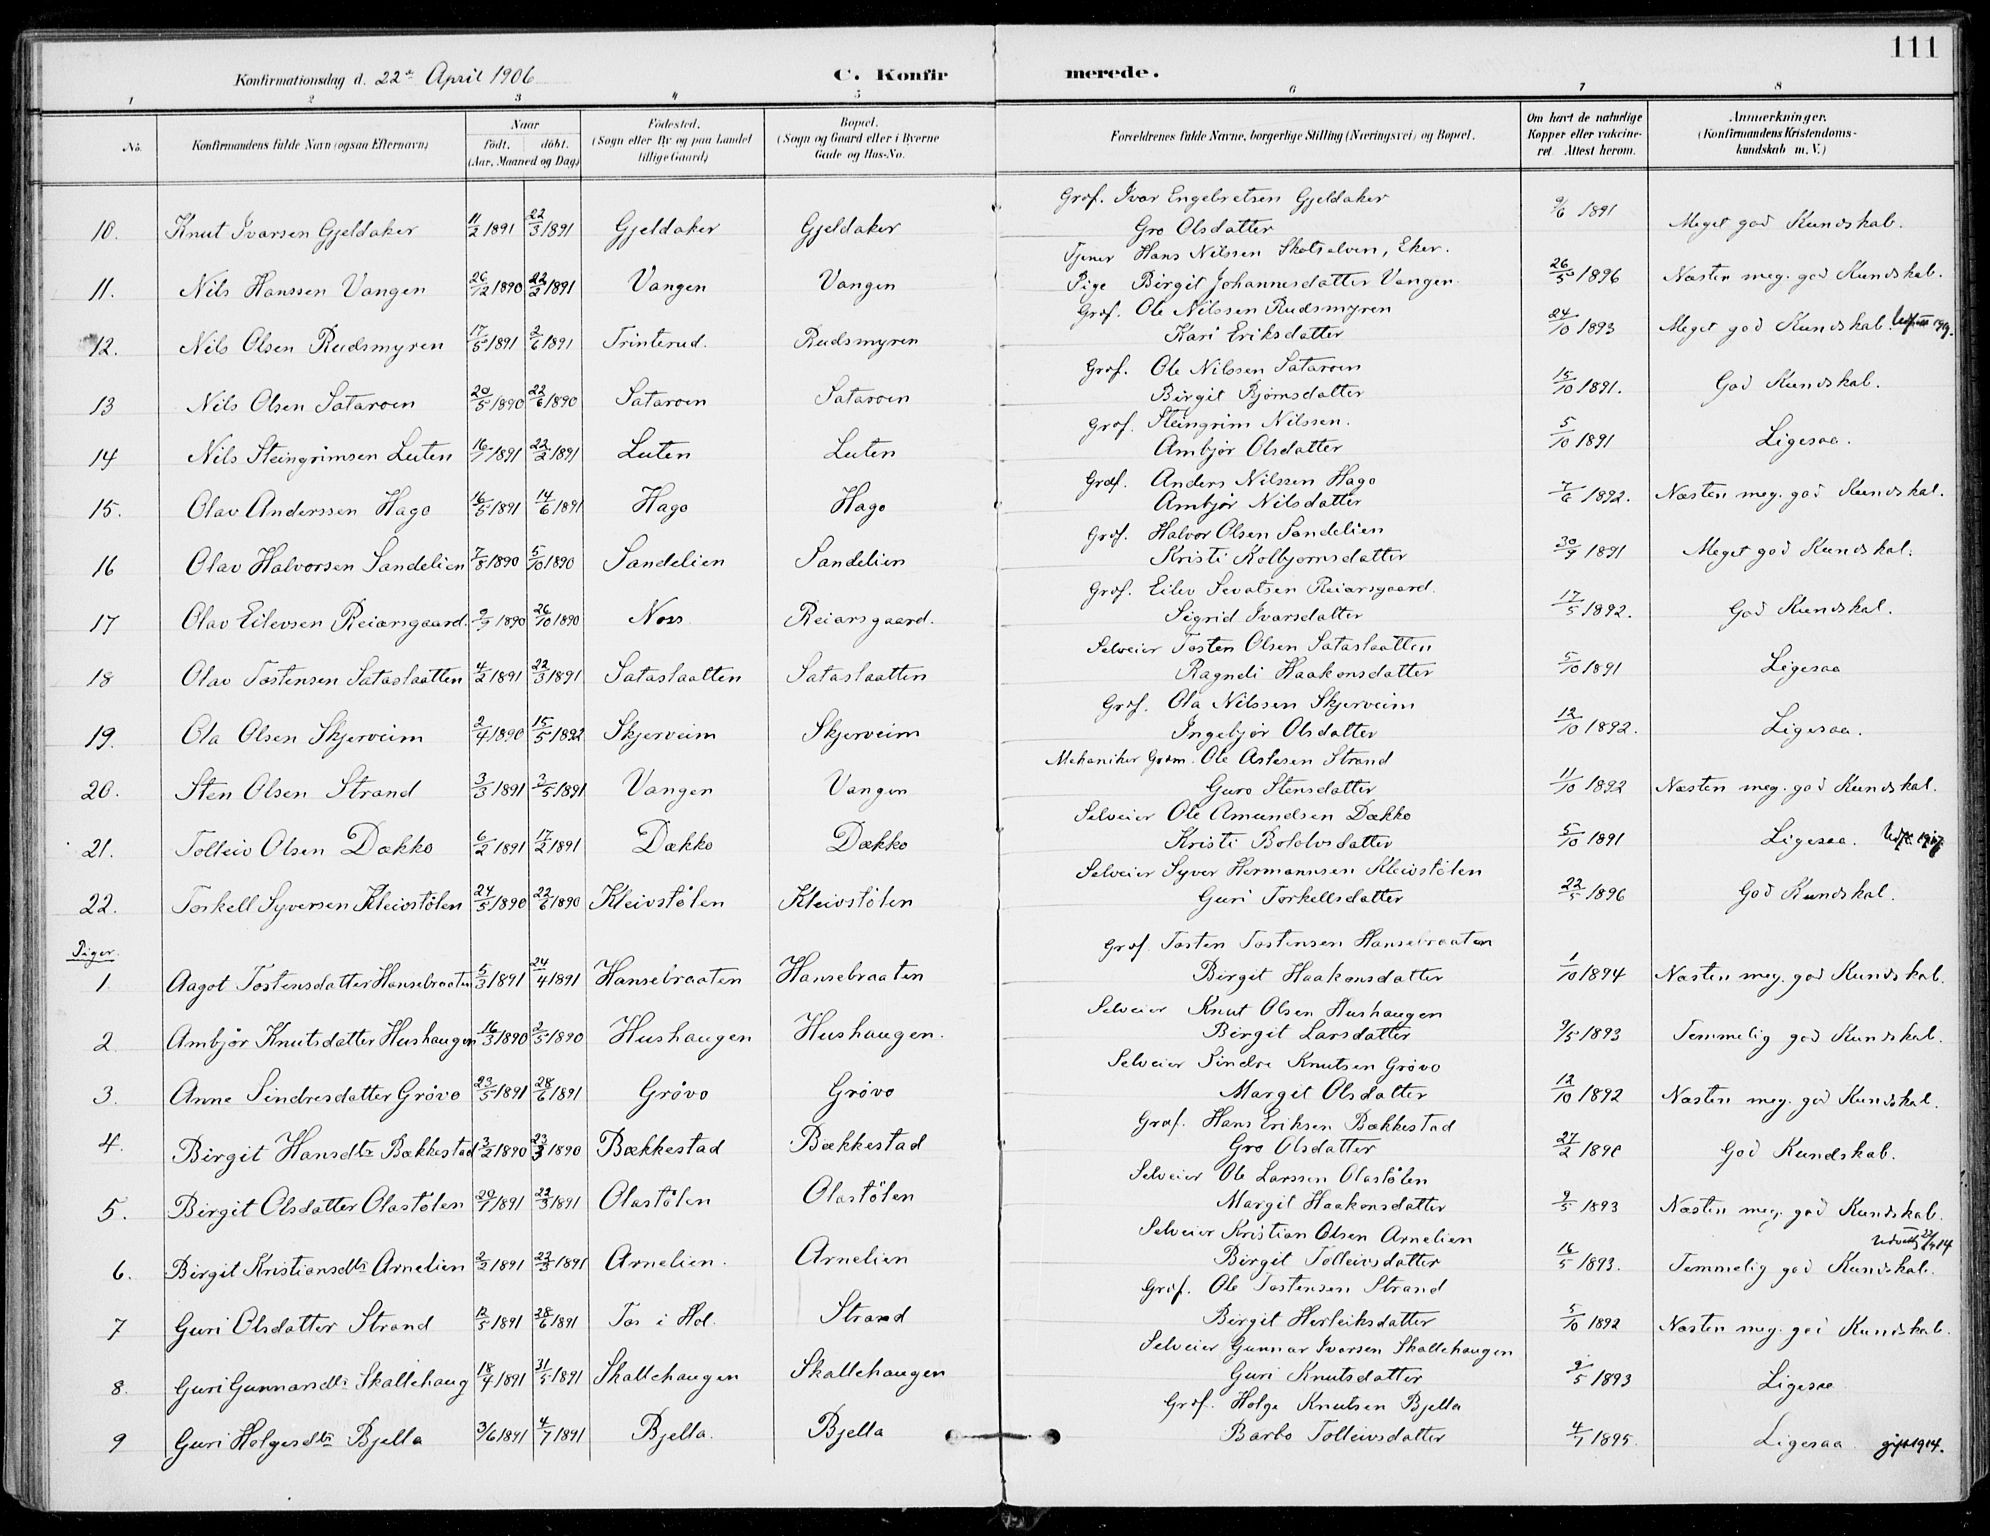 111
Konfirmationsdag d. 22de April 1906 C. Konfir merede.
1 2 3 4 5 6 7 8
No. Konfirmandens fulde Navn (ogsaa Efternavn) Naar født. døbt. (Aar, Maaned og Dag) Födested. (Sogn eller By og paa Landet tillige Gaard) Bopæl. (Sogn og Gaard eller i Byerne Gade og Hus-No. Forældrenes fulde Navne, borgerlige Stilling (Næringsvei) og Bopæl. Om havt de naturlige Kopper eller vakcineret. Attest herom. Anmærkninger. (Konfirmandens Kristendomskundskab m. V.)
Grdf. Ivar Engebretsen Gjeldaker
10. Knut Ivarsen Gjeldaker 11/2 1891 22/3 1891 Gjeldaker Gjeldaker Gro Olsdatter 9/6 1891 Meget god Kundskab.
Tjener Hans Nilssen Skotselven, Eker.
11. Nils Hanssen Vangen 26/12 1890 22/2 1891 Vangen Vangen Pige Birgit Johannesdatter Vangen. 26/5 1896 Næsten meg. god Kundskab.
Grdf. Ole Nilssen Rudsmyren
12. Nils Olsen Rudsmyren 17/5 1891 2/6 1891 Trinterud. Rudsmyren Kari Eriksdatter 24/10 1893 Meget god Kundskab.
Grdf. Ole Nilssen Sataroen
13 Nils Olsen Sataroen 20/5 1890 22/6 1890 Sataroen Sataroen Birgit Bjørnsdatter 15/10 1891. God Kundskab.
Grdf. Steingrim Nilssen.
14 Nils Steingrimsen Luten 16/1 1891 22/2 1891 Luten Luten Ambjør Olsdatter 5/10 1891 Ligesaa.
Grdf. Anders Nilssen Hago
15. Olav Anderssen Hago 16/5 1891 14/6 1891 Hago Hago Ambjør Nilsdatter 7/6 1892. Næsten meg. god Kundskab.
Grdf. Halvor Olsen Sandelien
16 Olav Halvorsen Sandelien 7/8 1890 5/10 1890 Sandelien Sandelien Kristi Kolbjørnsdatter 30/9 1891 Meget god Kundskab.
Grdf. Eilev Sevatsen Reiarsgaard.
17 Olav Eilevsen Reiarsgaard. 2/9 1890 26/10 1890 Noss Reiarsgaard. Sigrid Ivarsdatter 17/5 1892. God Kundskab.
Selveier Tosten Olsen Sataslaatten
18 Olav Tostensen Sataslaatten 4/2 1891 22/3 1891 Sataslaatten Sataslaatten Ragndi Haakonsdatter 5/10 1891 Ligesaa
Grdf. Ola Nilssen Skjerveim
19. Ola Olsen Skjerveim 2/4 1890 15/5 1892 Skjerveim Skjerveim Ingebjør Olsdatter 12/10 1892. Ligesaa.
Mekaniker Grdm. Ole Aslesen Strand
20. Sten Olsen Strand 3/3 1891 3/5 1891 Vangen Vangen Guro Stensdatter 11/10 1892 Næsten meg. god Kundskab.
Selveier Ole Amundsen Dækko
21. Tolleiv Olsen Dækko 6/2 1891 17/2 1891 Dækko Dækko Kristi Botolvsdatter 5/10 1891 Ligesaa.
Selveier Syver Hermannsen Kleivstölen
22. Torkell Syversen Kleivstölen 24/5 1890 22/6 1890 Kleivstölen Kleivstölen Guri Torkellsdatter 22/5 1896 God Kundskab.
Piger.
Grdf. Tosten Tostensen Hansebraaten
1 Aagot Tostensdatter Hansebraaten 5/3 1891 24/4 1891 Hansebraaten Hansebraaten Birgit Haakonsdatter 1/10 1894 Næsten meg. god Kundskab.
Selveier Knut Olsen Hushaugen
2. Ambjør Knutsdatter Hushaugen 16/3 1890 2/5 1890 Hushaugen Hushaugen. Birgit Larsdatter 9/5 1893 Temmelig god Kundskab.
Selveier Sindre Knutsen Grövo
3. Anne Sindresdatter Grövo 23/5 1891 28/6 1891 Grövo Grövo Margit Olsdatter 12/10 1892 Næsten meg. god Kundskab.
Grdf. Hans Eriksen Bækkestad
4. Birgit Hansdtr Bækkestad 3/2 1890 23/3 1890 Bækkestad Bækkestad Gro Olsdatter 27/2 God Kundskab.
Selveier Ole Larssen Olastölen
5. Birgit Olsdatter Olastölen 20/1 1891 22/3 1891 Olastölen Olastölen Margit Haakonsdatter 9/5 1893 Næsten meg. god Kundskab.
Selveier Kristian Olsen Arnelien
6. Birgit Kristiansdtr Arnelien 2/2 1891 22/3 1891 Arnelien. Arnelien Birgit Tolleivsdatter 16/5 1893. Temmelig god Kundskab.
Grdf. Ole Tostensen Strand
7 Guri Olsdatter Strand 12/5 1891 28/6 1891 Tos i Hol. Strand Birgit Herleiksdatter 5/10 1892 Næsten meg. god Kundskab.
Selveier Gunnar Ivarsen Skallehaugen
8. Guri Gunnarsdtr Skallehaug 18/4 1891 31/5 1891 Skallehaugen Skallehaugen Guri Knutsdatter 9/5 1893 Ligesaa
Grdf. Holge Knutsen Bjella
9 Guri Holgesdtr Bjella 3/6 1891 4/7 1891 Bjella. Bjella Barbo Tolleivsdatter 4/7 1895. Ligesaa gift 1914.